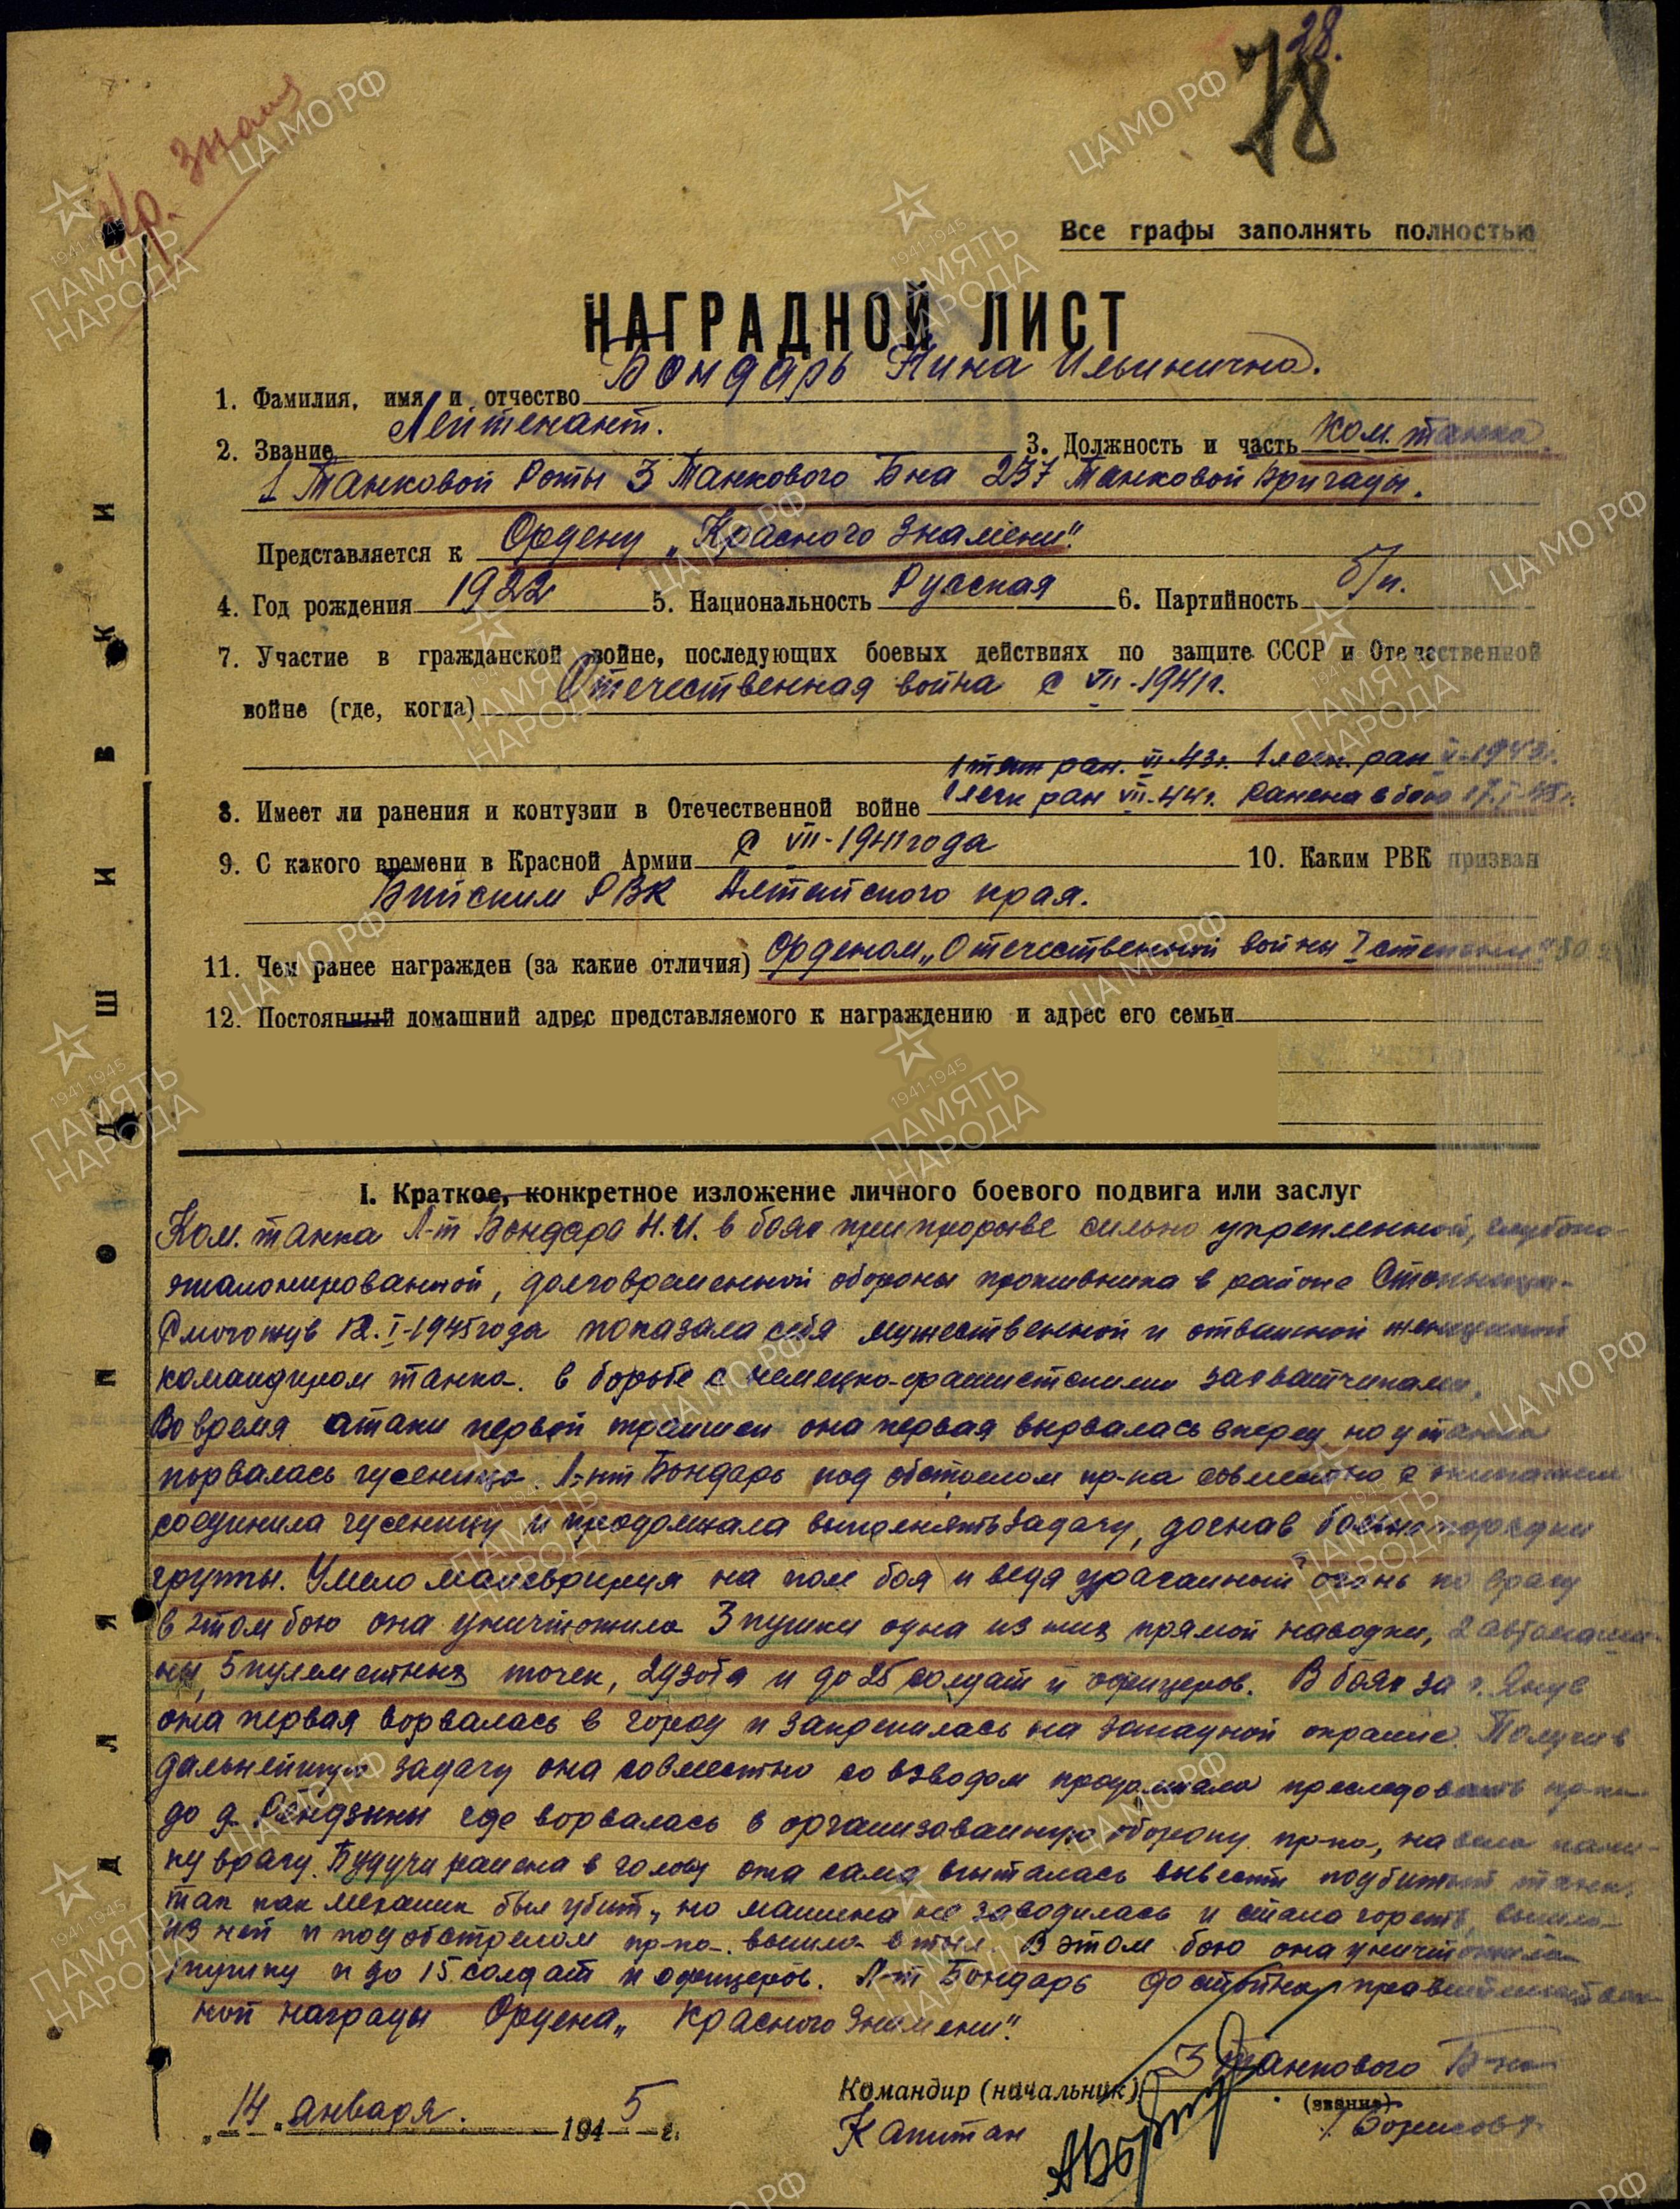 28.
78
Кр. Знамя
Все графы заполнять полностью
НАГРАДНОЙ ЛИСТ
1. Фамилия, имя и отчество Бондарь Нина Ильинична.
2. Звание Лейтенант. 3. Должность и часть Ком. танка
1 Танковой Роты 3 Танкового Б-на 237 Танковой Бригады.
Представляется к Ордену „Красного Знамени".
4. Год рождения 1922 5. Национальность Русская 6. Партийность б/п.
7. Участие в гражданской войне, последующих боевых действиях по защите СССР и Отечественной
войне (где, когда) Отечественная война с VII-1941г.
1 тяж ран. VI-43г. 1 легк. ран 1943г.
8. Имеет ли ранения и контузии в Отечественной войне 1 легк ран VII-44г. Ранена в бою
9. С какого времени в Красной Армии С VII-1941 года 10. Каким РВК призван
Бийским РВК Алтайского края.
11. Чем ранее награжден (за какие отличия) Орденом „Отечественной войны I степени"
12. Постоянный домашний адрес представляемого к награждению и адрес его семьи
I. Краткое, конкретное изложение личного боевого подвига или заслуг
Ком. танка Л-т Бондарь Н.И. в боях при прорыве сильно укрепленной, глубоко
эшалонированной, долговременной обороны противника в районе Стопница-
Смогожув 12.I-1945 года показала себя мужественной и отважной женщиной
командиром танка. в борьбе с немецко-фашистскими захватчиками.
Во время атаки первой траншеи она первая вырвалась вперед, но у танка
порвалась гусеница. Л-нт Бондарь под обстрелом пр-ка совместно с экипажем
соединила гусеницу и продолжала выполнять задачу, догнав боевые порядки
группы. Умело маневрируя на поле боя и ведя ураганный огонь по врагу
в этом бою она уничтожила 3 пушки одна из них прямой наводки, 2 автомаши-
ны, 5 пулеметных точек, 2 дзота и до 25 солдат и офицеров. В боях за г. Янув
она первая ворвалась в город и закрепилась на западной окраине. Получив
дальнейшую задачу она совместно со взводом продолжала преследовать пр-ка
до д. Рендзины где ворвалась в организованную оборону пр-ка, навела пани-
ку врагу. Будучи ранена в голову она сама пыталась вывести подбитый танк,
так как механик был убит, но машина не заводилась и стала гореть, вышла
из ней и под обстрелом пр-ка вышла в тыл. В этом бою она уничтожила
1 пушку и до 15 солдат и офицеров. Л-т Бондарь достойна правительствен-
ной награды Ордена „Красного Знамени".
Командир (начальник) 3 Танкового Б-на
(звание)
„14" января. 1945 г.
Капитан /Борисов/
ДЛЯ ПОДШИВКИ
1941-1945
ПАМЯТЬ
НАРОДА
ЦА МО РФ